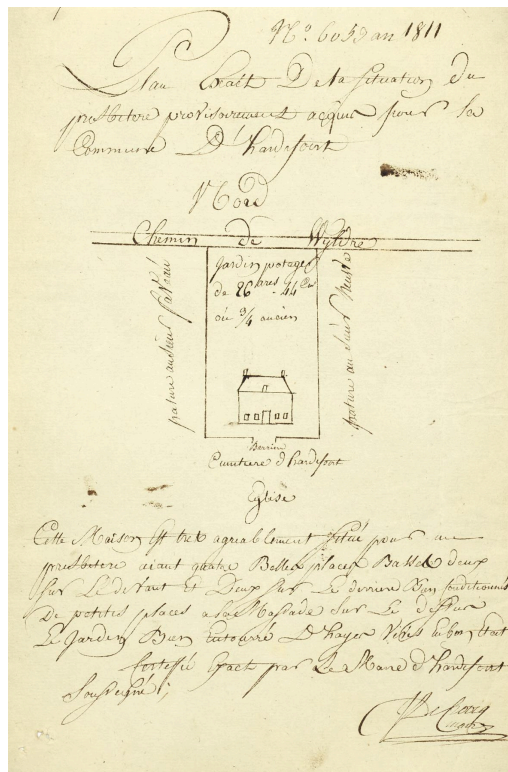 N.o 6059 an 1811
Plan Exact De la situation du
presbitere provisoirement acquis pour la
Commune D'hardifort
Nord
Chemin de Wyldre
Jardin potager
de 26 ares 44 Ces
ou 3/4 ancien
pature au sieur
pature au sieur
Barriere
Cimitiere d'hardifort
Eglise
Cette Maison Est tres agreablement situé pour un
presbitere aiant quatre Belles places Basses deux
sur Le devant et Deux sur Le derriere Bien Conditionnés
De petites places a la Mansarde sur Le dessus
Le Jardin Bien Entourré D'hayes Vives En bon Etat
Certifié Exact par Le Maire d'hardifort
Soussigné;
De Cocq
maire